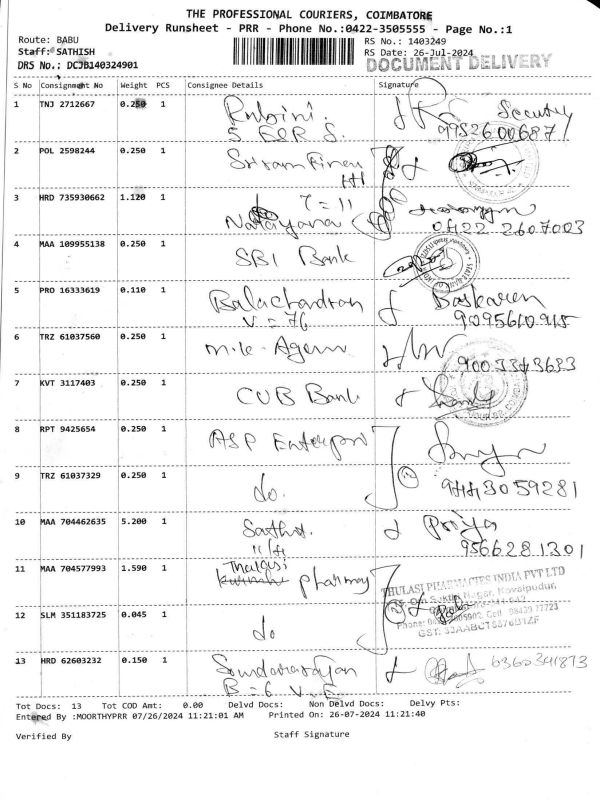 THE PROFESSIONAL COURIERS, COIMBATORE
Delivery Runsheet - PRR - Phone No.:0422-3505555 - Page No.:1
Route: BABU
Staff: SATHISH
DRS No.: DCJB140324901
RS No.: 1403249
RS Date: 26-Jul-2024
DOCUMENT DELIVERY
S No Consignment No Weight PCS Consignee Details Signature
1 TNJ 2712667 0.250 1 Rubini. Security
9952600687
2 POL 2598244 0.250 1
3 HRD 735930662 1.120 1 7 = 11
Narayana 0422 2607003
4 MAA 109955138 0.250 1 SBI Bank
5 PRO 16333619 0.110 1 Balachandran Baskaren
V = 76 9095610915
6 TRZ 61037560 0.250 1
9003343633
7 KVT 3117403 0.250 1 CUB Bank
8 RPT 9425654 0.250 1 ASP
9 TRZ 61037329 0.250 1 do.
9443059281
10 MAA 704462635 5.200 1 Priya
9566281301
11 MAA 704577993 1.590 1 Thulasi
pharmacy
THULASI PHARMACIES INDIA PVT LTD
12 SLM 351183725 0.045 1 do
13 HRD 62603232 0.150 1 6360341873
B = 6 V.E
Tot Docs: 13 Tot COD Amt: 0.00 Delvd Docs: Non Delvd Docs: Delvy Pts:
Entered By :MOORTHYPRR 07/26/2024 11:21:01 AM Printed On: 26-07-2024 11:21:40
Verified By Staff Signature